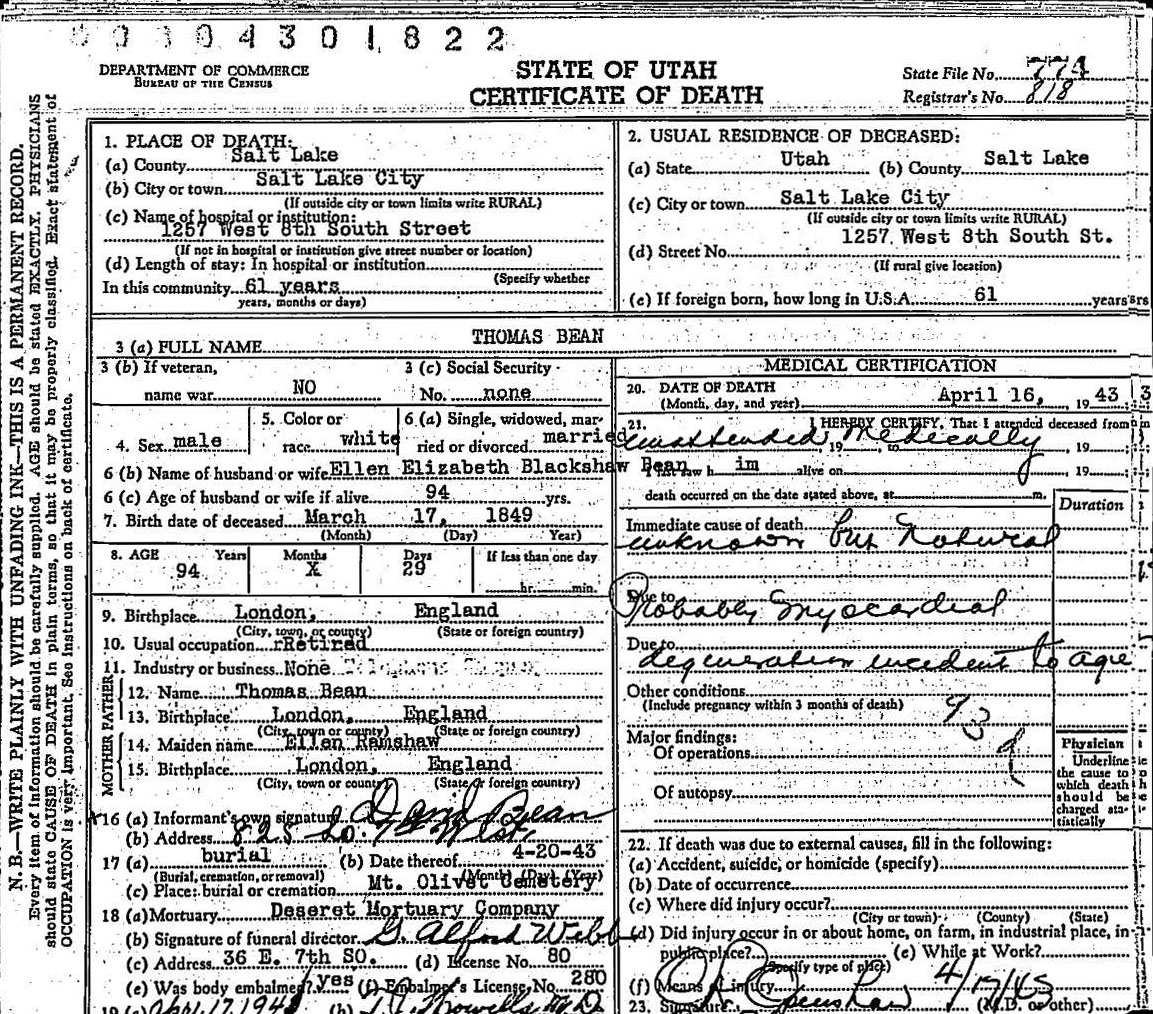 0030430 1822
DEPARTMENT OF COMMERCE
BUREAU OF THE CENSUS
STATE OF UTAH
CERTIFICATE OF DEATH
State File No. 774
Registrar's No. 818
N. B.—WRITE PLAINLY WITH UNFADING INK—THIS IS A PERMANENT RECORD.
Every item of information should be carefully supplied. AGE should be stated EXACTLY. PHYSICIANS
should state CAUSE OF DEATH in plain terms, so that it may be properly classified. Exact statement of
OCCUPATION is very important. See instructions on back of certificate.
1. PLACE OF DEATH:
(a) County Salt Lake
(b) City or town Salt Lake City
(If outside city or town limits write RURAL)
(c) Name of hospital or institution:
1257 West 8th South Street
(If not in hospital or institution give street number or location)
(d) Length of stay: In hospital or institution
(Specify whether
In this community 61 years
years, months or days)
2. USUAL RESIDENCE OF DECEASED:
(a) State Utah (b) County Salt Lake
(c) City or town Salt Lake City
(If outside city or town limits write RURAL)
1257 West 8th South St.
(d) Street No.
(If rural give location)
(e) If foreign born, how long in U.S.A. 61 years
3 (a) FULL NAME THOMAS BEAN
3 (b) If veteran,
name war NO
3 (c) Social Security
No. none
4. Sex male
5. Color or
race white
6 (a) Single, widowed, mar-
ried or divorced married
6 (b) Name of husband or wife Ellen Elizabeth Blackshaw Bean
6 (c) Age of husband or wife if alive 94 yrs.
7. Birth date of deceased March 17, 1849
(Month) (Day) Year)
8. AGE Years Months Days If less than one day
94 X 29
hr. min.
9. Birthplace London, England
(City, town, or county) (State or foreign country)
10. Usual occupation rRetired
11. Industry or business None
FATHER
12. Name Thomas Bean
13. Birthplace London, England
(City, town or county) (State or foreign country)
MOTHER
14. Maiden name Ellen Ramshaw
15. Birthplace London, England
(City, town, or county) (State or foreign country)
16 (a) Informant's own signature David Bean
(b) Address 825 So. 7th West.
17 (a) burial (b) Date thereof 4-20-43
(Burial, cremation, or removal) (Month) (Day) (Year)
(c) Place: burial or cremation Mt. Olivet Cemetery
18 (a) Mortuary Deseret Mortuary Company
(b) Signature of funeral director G. Alford Webb
(c) Address 36 E. 7th SO. (d) License No. 80
(e) Was body embalmed? yes (f) Embalmer's License No. 280
19 (a) Apr. 17, 1943 (b)
MEDICAL CERTIFICATION
20. DATE OF DEATH
(Month, day, and year) April 16, 19 43
21. I HEREBY CERTIFY, That I attended deceased from
unattended, 19 , to Medically , 19
I last saw h im alive on 19
death occurred on the date stated above, at m.
Duration
Immediate cause of death
unknown but Natural
Due to
Probably Myocardial
Due to
degeneration incident to age
Other conditions
(Include pregnancy within 3 months of death)
93 d
Major findings:
Of operations
Of autopsy
Physician
Underline
the cause to
which death
should be
charged sta-
tistically
22. If death was due to external causes, fill in the following:
(a) Accident, suicide, or homicide (specify)
(b) Date of occurrence
(c) Where did injury occur?
(City or town) (County) (State)
(d) Did injury occur in or about home, on farm, in industrial place, in
public place? (e) While at Work?
(Specify type of place)
(f) Means of injury
23. Signature (M.D. or other)